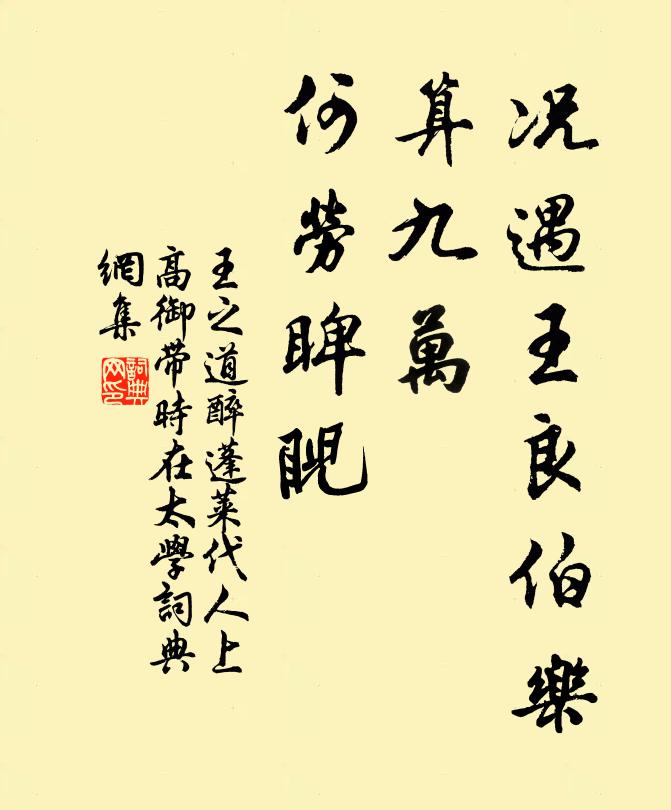 况遇王良伯樂
算九萬
何勞睥睨
王之道醉蓬萊代人上
高御带時在太學詞典
網集
詞典
网印